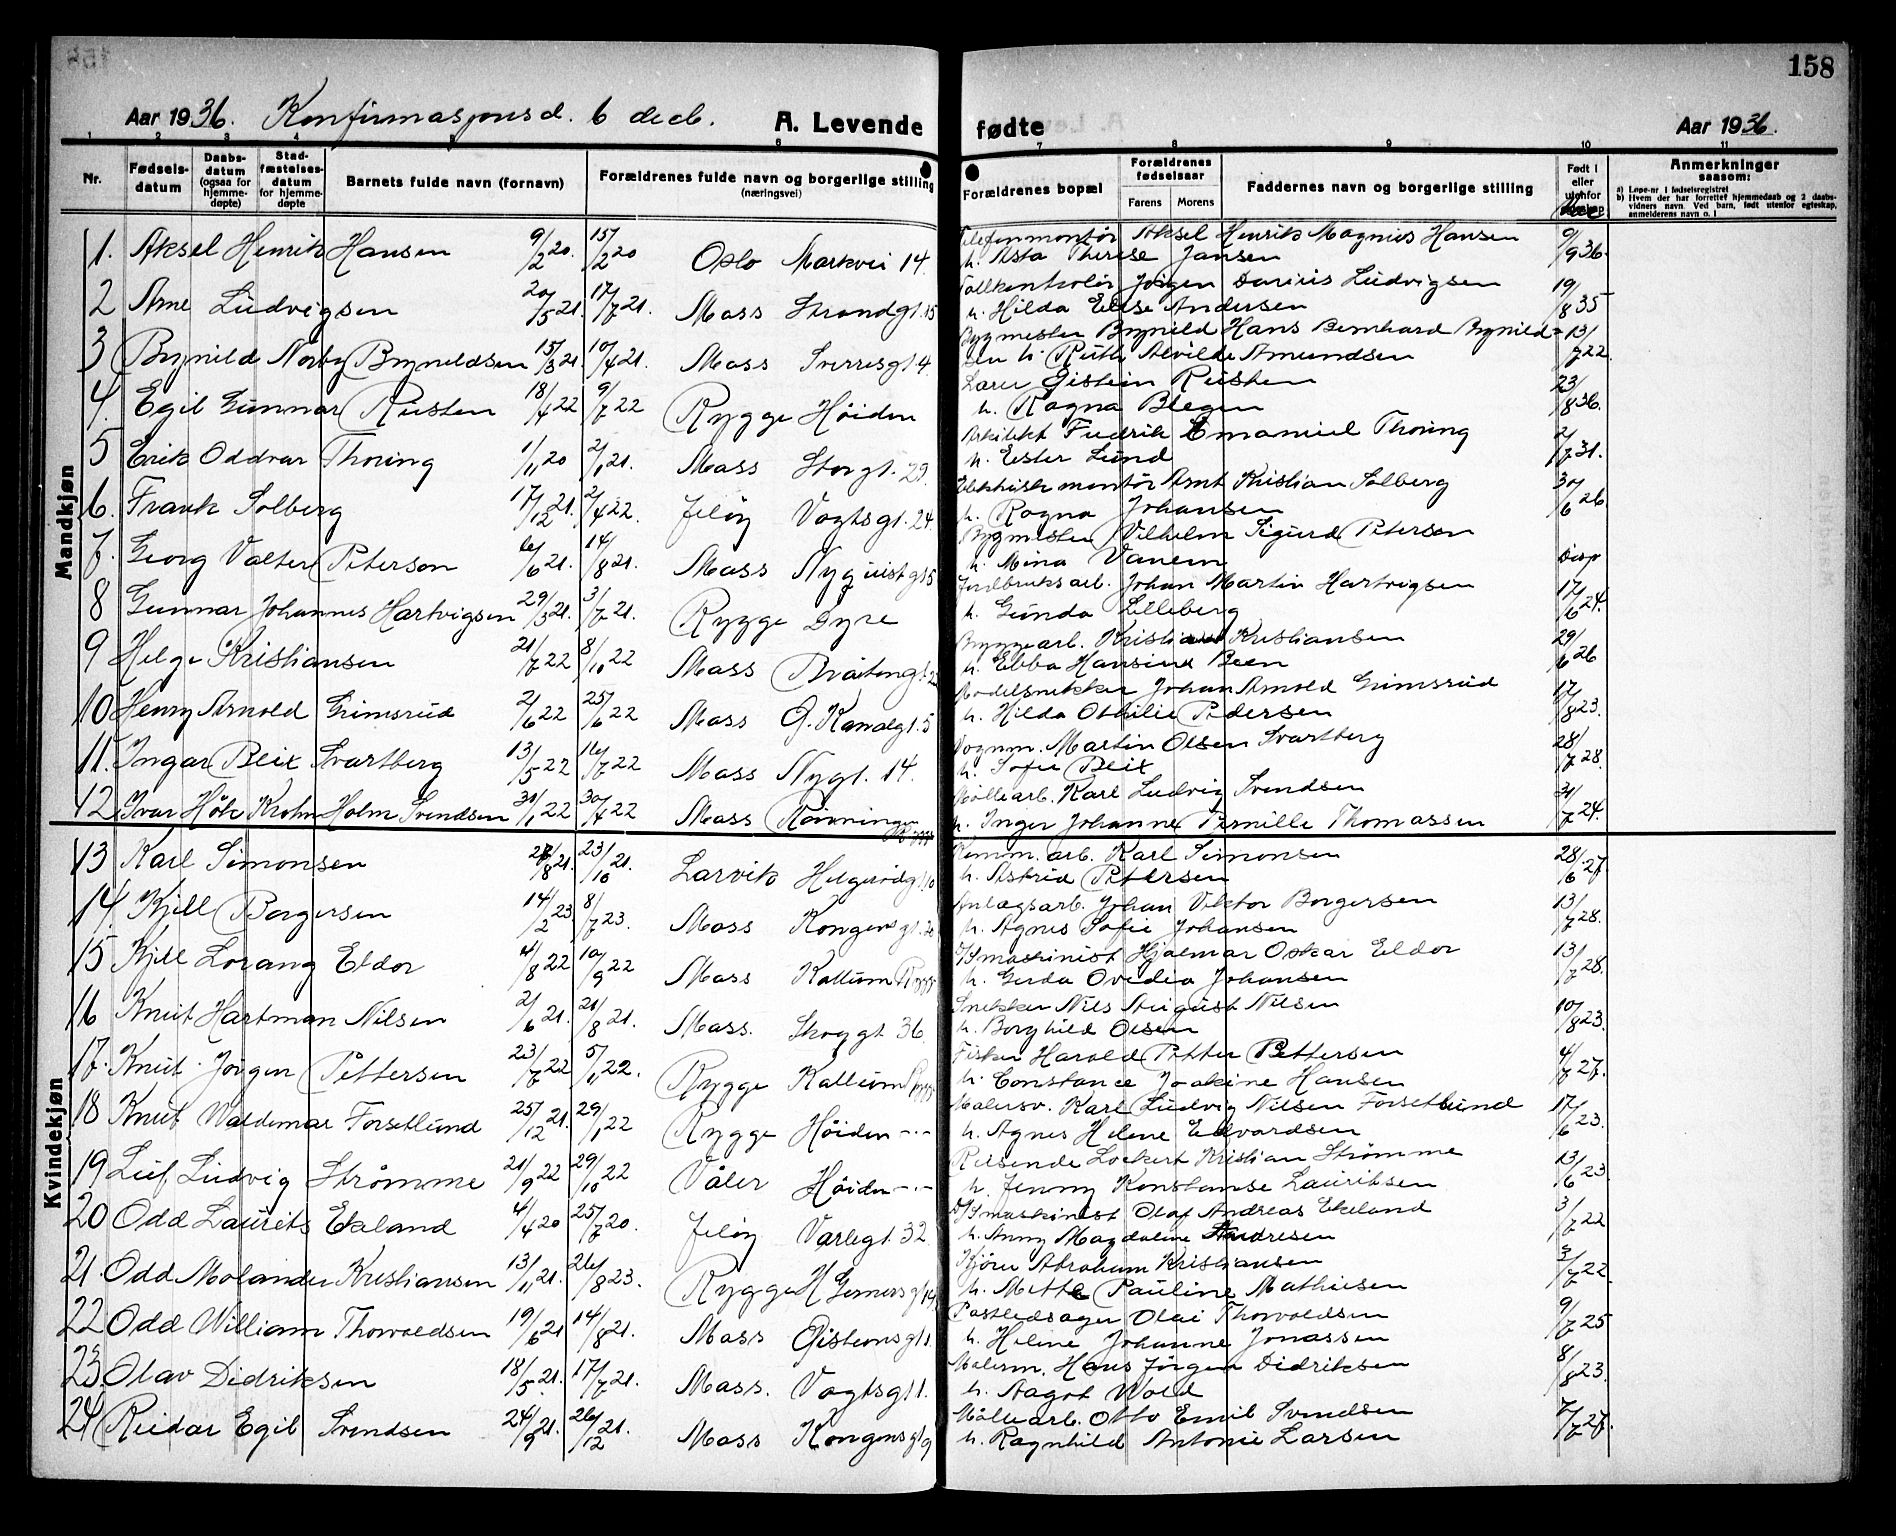 158
Aar 1936. Konfirmasjonsd. 6 decb. A. Levende fødte Aar 1936.
1 2 3 4 5 6 7 8 9 10 11
Nr. Fødsels-datum Daabs-datum (ogsaa for hjemme-døpte) Stad-fæstelses-datum for hjemme-døpte Barnets fulde navn (fornavn) Forældrenes fulde navn og borgerlige stilling (næringsvei) Forældrenes bopæl Forældrenes fødselsaar Farens Morens Faddernes navn og borgerlige stilling Født i eller utenfor Anmerkninger saasom:
a) Løpe-nr. i fødselsregistret
b) Hvem der har forrettet hjemmedaab og 2 daabs-vidners navn. Ved barn, født utenfor egteskap, anmelderens navn o. l
Mandkjøn
1. Aksel Henrik Hansen 9/2 20. 15/2 20 Oslo Markvei 14. Telefonmontör Aksel Henrik Magnus Hansen 9/9 36.
h. Asta Therese Jansen
2 Arne Ludvigsen 20/5 21. 17/7 21. Moss Strandgt. 15 Tollkontrolör Jörgen Darius Ludvigsen 19/8 35
h. Hilda Elise Andersen
3 Brynild Norby Bryneldsen 15/3 21. 10/4 21. Moss Sverresgt 4. Bygmester Brynild Hans Bernhard Brynild- 13/7 22.
sen h. Ruth Alvilde Amundsen
4. Egil Gunnar Rusten 18/4 22 9/7 22 Rygge Höiden Lærer Gistein Rusten 23/8 36.
h. Ragna Blegen
5 Erik Oddvar Thoring 1/11 20 2/1 21. Moss Storgt. 29. Arkitekt Fredrik Emanuel Thoring 2/7 31.
h. Ester Lund
6. Frank Solberg 17/12 21. 2/4 22. Jelöy Vogtsgt. 24. Elektrisk montör Arnt Kristian Solberg 30/6 26
h. Ragna Johansen
7. Georg Valter Peterson 6/6 21. 14/8 21. Moss Nyquistgt 5 Bygmester Vilhelm Sigurd Peterson Disp
h. Mina Vanem
8 Gunnar Johannes Hartvigsen 29/3 21. 3/7 21. Rygge Dyre Jordbruksarb. Johan Martin Hartvigsen 17/6 24.
h. Gunda Lilleberg
9 Helge Kristiansen 21/7 22 8/10 22 Moss Bråtengt. Byggearb. Kristian Kristiansen 29/6 26
h. Ebba Hansine Been
10 Henry Arnold Grimsrud 2/6 22 25/6 22 Moss G. Kanalgt. 5 Modelsnekker Johan Arnold Grimsrud 17/8 23.
h. Hilda Othilie Pedersen
11. Ingar Bleix Svartberg 13/5 22 16/7 22 Moss Nygt. 14. Vognm. Martin Olsen Svartberg 28/7 28.
h. Sofie Bleix
12 Ivar Hök Krohn Holm Svendsen 31/1 22 30/4 22 Moss Rönningen Rygge Möllearb. Karl Ludvig Svendsen 31/7 24.
h. Inger Johanne Pernille Thomassen
Kvindekjøn
13 Karl Simonsen 28/8 21. 23/10 21. Larvik Helgerødgt 10 Komm. arb. Karl Simonsen 28/6 27
h. Astrid Petersen
14. Kjell Borgersen 14/2 23 8/7 23. Moss Kongensgt. 20 Anlægsarb. Johan Viktor Borgersen 13/7 28.
h. Agnes Sofie Johansen
15 Kjell Lorang Eldor 4/8 22 10/9 22 Moss Kallum Rygge D/S maskinist Hjalmar Oskar Eldor 13/7 28.
h. Gerda Ovedia Johansen
16 Knut Hartman Nilsen 2/6 21. 21/8 21. Moss. Skoggt 36 Snekker Nils August Nilsen 10/8 23.
h. Borghild Olsen
17. Knut Jörgen Pettersen 23/7 22 5/11 22. Rygge Kallum Rygge Fisker Harald Petter Pettersen 4/8 27.
h. Constance Joakine Hansen
18 Knut Waldemar Forsetlund 25/12 21. 29/1 22 Rygge Höiden -.- Malersv. Karl Ludvig Nilsen Forsetlund 17/6 23.
h. Agnes Helene Edvardsen
19 Leif Ludvig Strömme 21/9 22 29/10 22 Våler Höiden -.- Reisende Lockert Kristian Strömme 13/6 23.
h. Jenny Konstanse Lauritsen
20 Odd Laurits Ekeland 4/4 20 25/7 20. Jelöy Varlegt. 32 D/S maskinist Olaf Andreas Ekeland 3/7 22
h. Anny Magdaline Andresen
21. Odd Molander Kristiansen 13/11 21. 26/8 23. Rygge H. Gernersgt 14 Kjörer Abraham Kristiansen 2/7 22.
h. Mette Pauline Mathiesen
22 Odd William Thorvaldsen 19/6 21 14/8 21. Moss Gistensgt 1. Postledsager Olai Thorvaldsen 9/7 25
h. Heline Johanne Jonassen
23. Olav Didriksen 18/5 21. 17/7 21. Moss. Vogtsgt 1. Malerm. Hans Jörgen Didriksen 8/8 23.
h. Aagot Wold
24 Reidar Egil Svendsen 24/9 21. 26/12 21. Moss Kongensgt 9 Möllearb. Otto Emil Svendsen 7/7 27.
h. Ragnhild Antonie Larsen